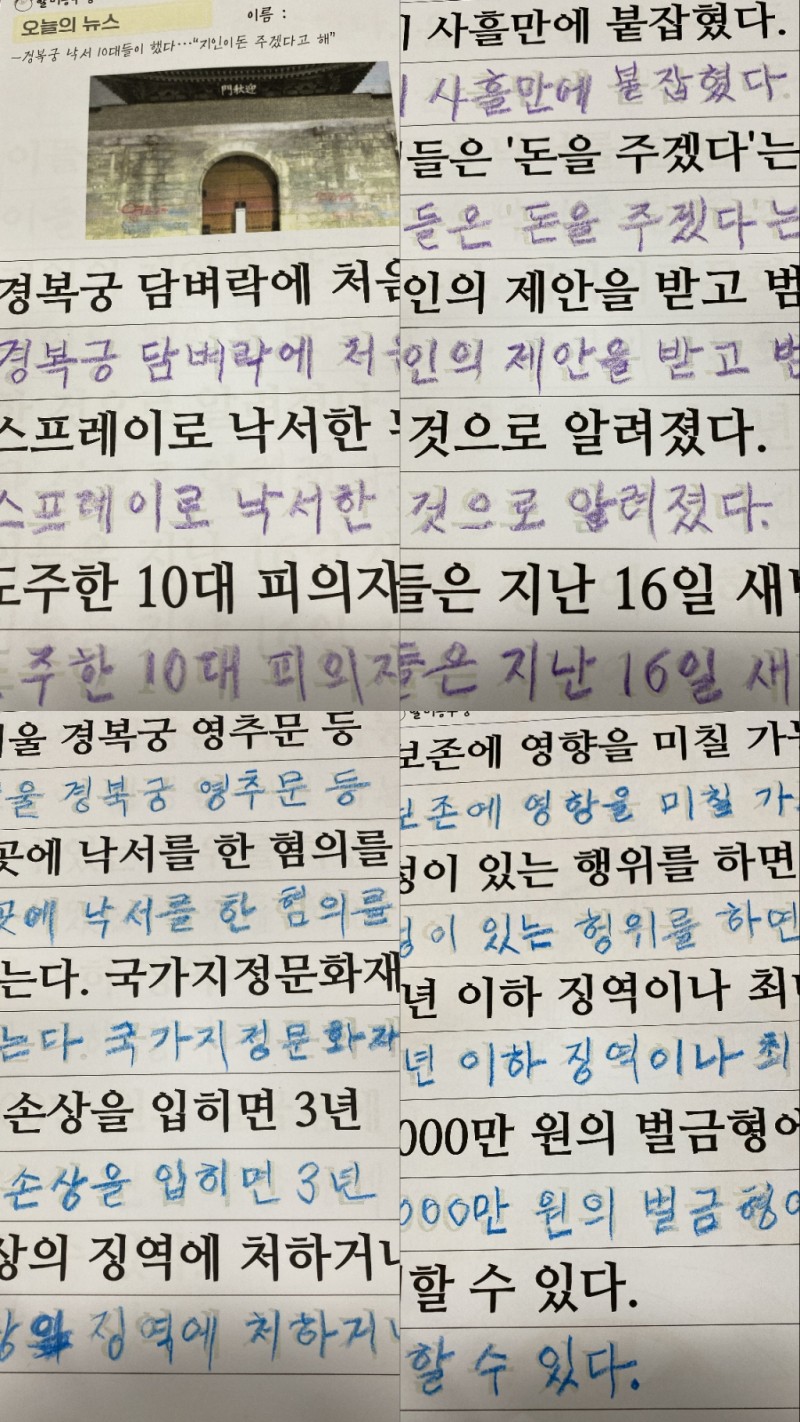 오늘의 뉴스
이름 :
-경복궁 낙서 10대들이 했다…"지인이 돈 주겠다고 해"
門秋迎
경복궁 담벼락에 처음
경복궁 담벼락에 처음
스프레이로 낙서한
스프레이로 낙서한
도주한 10대 피의자
주한 10대 피의자
사흘만에 붙잡혔다.
사흘만에 붙잡혔다
들은 '돈을 주겠다'는
들은 돈을 주겠다는
인의 제안을 받고 범
인의 제안을 받고 범
것으로 알려졌다.
것으로 알려졌다.
들은 지난 16일 새
들은 지난 16일 새
울 경복궁 영추문 등
울 경복궁 영추문 등
곳에 낙서를 한 혐의를
곳에 낙서를 한 혐의를
는다. 국가지정문화재
는다. 국가지정문화재
손상을 입히면 3년
손상을 입히면 3년
상의 징역에 처하거나
상의 징역에 처하거나
보존에 영향을 미칠 가
보존에 영향을 미칠 가
성이 있는 행위를 하면
성이 있는 행위를 하면
년 이하 징역이나 최
년 이하 징역이나 최
000만 원의 벌금형에
000만 원의 벌금형
할 수 있다.
할 수 있다.